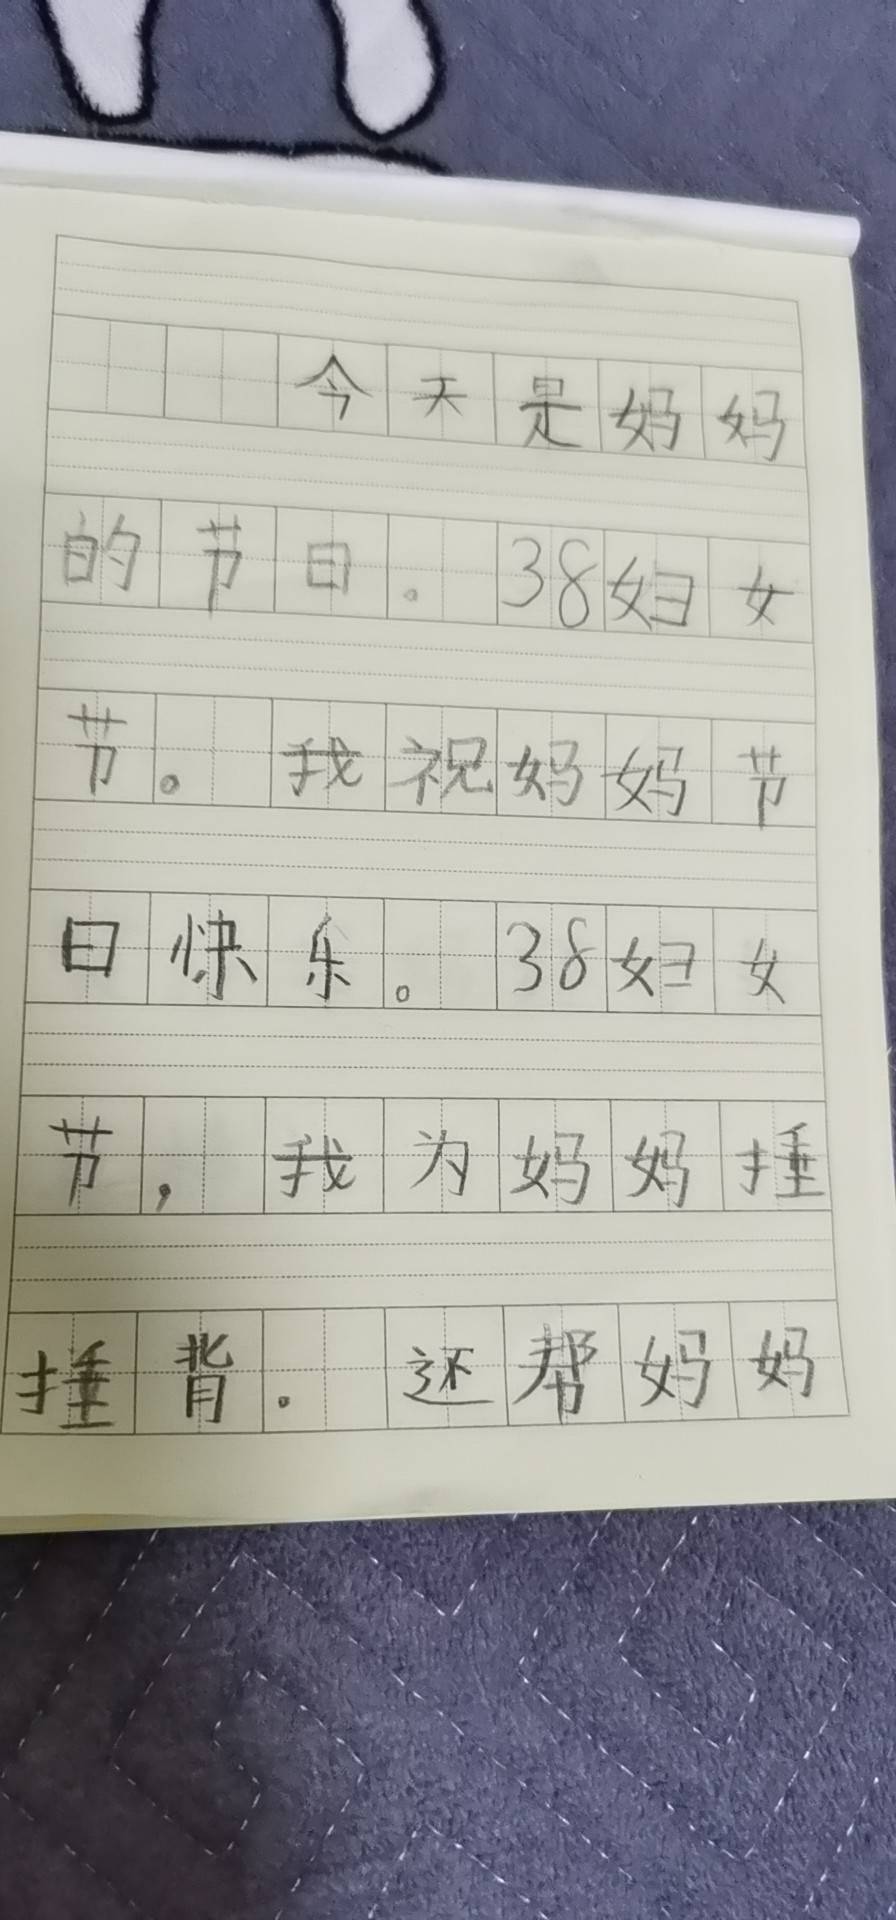 今天是妈妈
的节日。38妇女
节。我祝妈妈节
日快乐。38妇女
节，我为妈妈捶
捶背。还帮妈妈